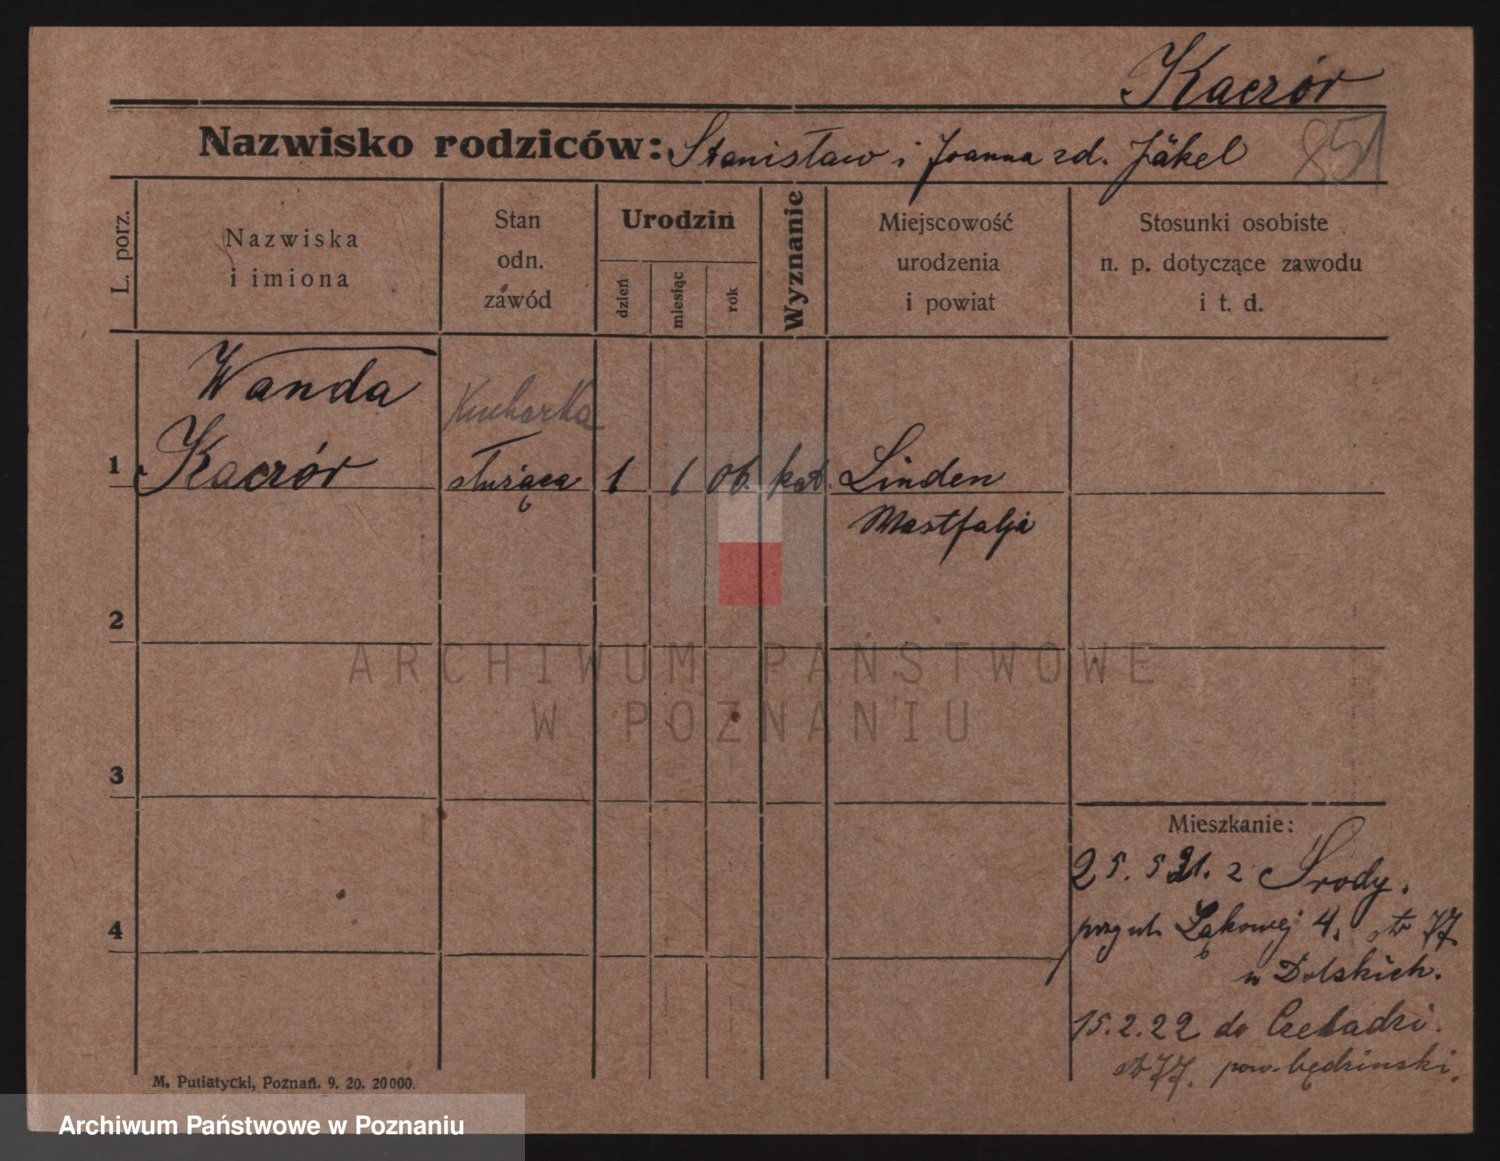 Kaczór
Nazwisko rodziców: Stanisław i Joanna zd. Jäkel
851
L. porz.
Nazwiska
i imiona
Stan
odn.
zawód
Urodzin
dzień
miesiąc
rok
Wyznanie
Miejscowość
urodzenia
i powiat
Stosunki osobiste
n. p. dotyczące zawodu
i t. d.
Wanda
Kucharka
1 Kaczór służąca 1 1 06. kat. Linden
Westfalja
2
ARCHIWUM PAŃSTWOWE
W POZNANIU
3
Mieszkanie:
25. 5 21. z Środy.
przy ul. Łąkowej 4. 77
u Dolskich.
4
15.2.22 do Czeladzi.
77. pow. będziński.
M. Putiatycki, Poznań. 9. 20. 20000.
Archiwum Państwowe w Poznaniu